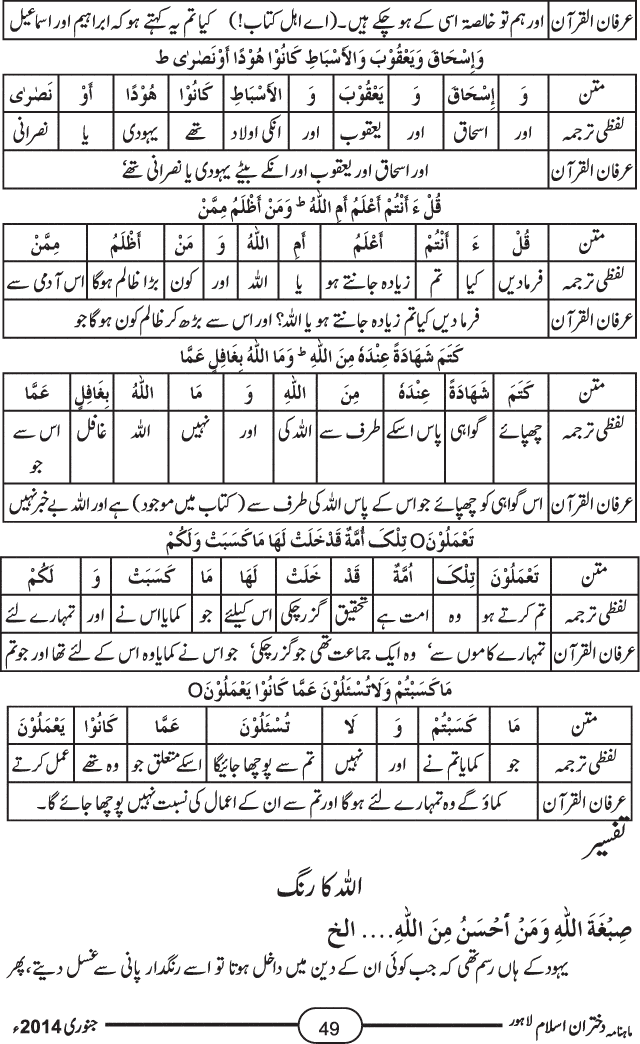 عرفان القرآن اور ہم تو خالصۃ اسی کے ہوچکے ہیں۔ (اے اہل کتاب!) کیا تم یہ کہتے ہو کہ ابراہیم اور اسماعیل
وَاِسْحَاقَ وَیَعْقُوْبَ وَالْاَسْبَاطِ کَانُوْا هُوْدًا اَوْ نَصٰرٰی ط
متن وَ اِسْحَاقَ وَ یَعْقُوْبَ وَ الْاَسْبَاطِ کَانُوْا هُوْدًا اَوْ نَصٰرٰی
لفظی ترجمہ اور اسحاق اور یعقوب اور انکی اولاد تھے یہودی یا نصرانی
عرفان القرآن اور اسحاق اور یعقوب اور انکے بیٹے یہودی یا نصرانی تھے‘
قُلْ ءَ اَنْتُمْ اَعْلَمُ اَمِ اللهُ ط وَمَنْ اَظْلَمُ مِمَّنْ
متن قُلْ ءَ اَنْتُمْ اَعْلَمُ اَمِ اللهُ وَ مَنْ اَظْلَمُ مِمَّنْ
لفظی ترجمہ فرمادیں کیا تم زیادہ جانتے ہو یا اللہ اور کون بڑا ظالم ہوگا اس آدمی سے
عرفان القرآن فرما دیں کیا تم زیادہ جانتے ہو یا اللہ؟ اور اس سے بڑھ کر ظالم کون ہوگا جو
کَتَمَ شَهَادَةً عِنْدَهٗ مِنَ اللهِ ط وَمَا اللهُ بِغَافِلٍ عَمَّا
متن کَتَمَ شَهَادَةً عِنْدَهٗ مِنَ اللهِ وَ مَا اللهُ بِغَافِلٍ عَمَّا
لفظی ترجمہ چھپائے گواہی پاس اسکے طرف سے اللہ کی اور نہیں اللہ غافل اس سے جو
عرفان القرآن اس گواہی کو چھپائے جو اس کے پاس اللہ کی طرف سے (کتاب میں موجود) ہے اور اللہ بے خبر نہیں
تَعْمَلُوْنَO تِلْکَ اُمَّةٌ قَدْخَلَتْ لَهَا مَا کَسَبَتْ وَلَکُمْ
متن تَعْمَلُوْنَ تِلْکَ اُمَّةٌ قَدْ خَلَتْ لَهَا مَا کَسَبَتْ وَ لَکُمْ
لفظی ترجمہ تم کرتے ہو وہ امت ہے تحقیق گزر چکی اس کیلئے جو کمایا اس نے اور تمہارے لئے
عرفان القرآن تمہارے کاموں سے‘ وہ ایک جماعت تھی جو گزر چکی‘ جو اس نے کمایا وہ اس کے لئے تھا اور جو تم
مَا کَسَبْتُمْ وَلَا تُسْئَلُوْنَ عَمَّا کَانُوْا یَعْمَلُوْنَO
متن مَا کَسَبْتُمْ وَ لَا تُسْئَلُوْنَ عَمَّا کَانُوْا یَعْمَلُوْنَ
لفظی ترجمہ جو کمایا تم نے اور نہیں تم سے پوچھا جائیگا اسکے متعلق جو وہ تھے عمل کرتے
عرفان القرآن کماؤ گے وہ تمہارے لئے ہوگا اور تم سے ان کے اعمال کی نسبت نہیں پوچھا جائے گا۔
تفسیر
اللہ کا رنگ
صِبْغَةَ اللهِ وَمَنْ اَحْسَنُ مِنَ اللهِ.... الخ
یہود کے ہاں رسم تھی کہ جب کوئی ان کے دین میں داخل ہوتا تو اسے رنگدار پانی سے غسل دیتے، پھر
ماہنامہ دختران اسلام لاہور 49 جنوری 2014ء